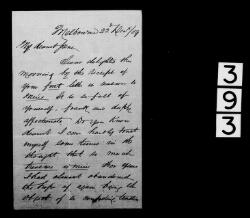 Melbourne 23d
My dearest Jane
I was delighted this
morning by the receipt of
your first letter in answer to
mine. It is so full of
yourself, frank and deeply
affectionate. Do you know
dearest I can hardly trust
myself some times in the
thought that so much
is mine. When
I had almost abandoned
the hope of again being the
object of a
393